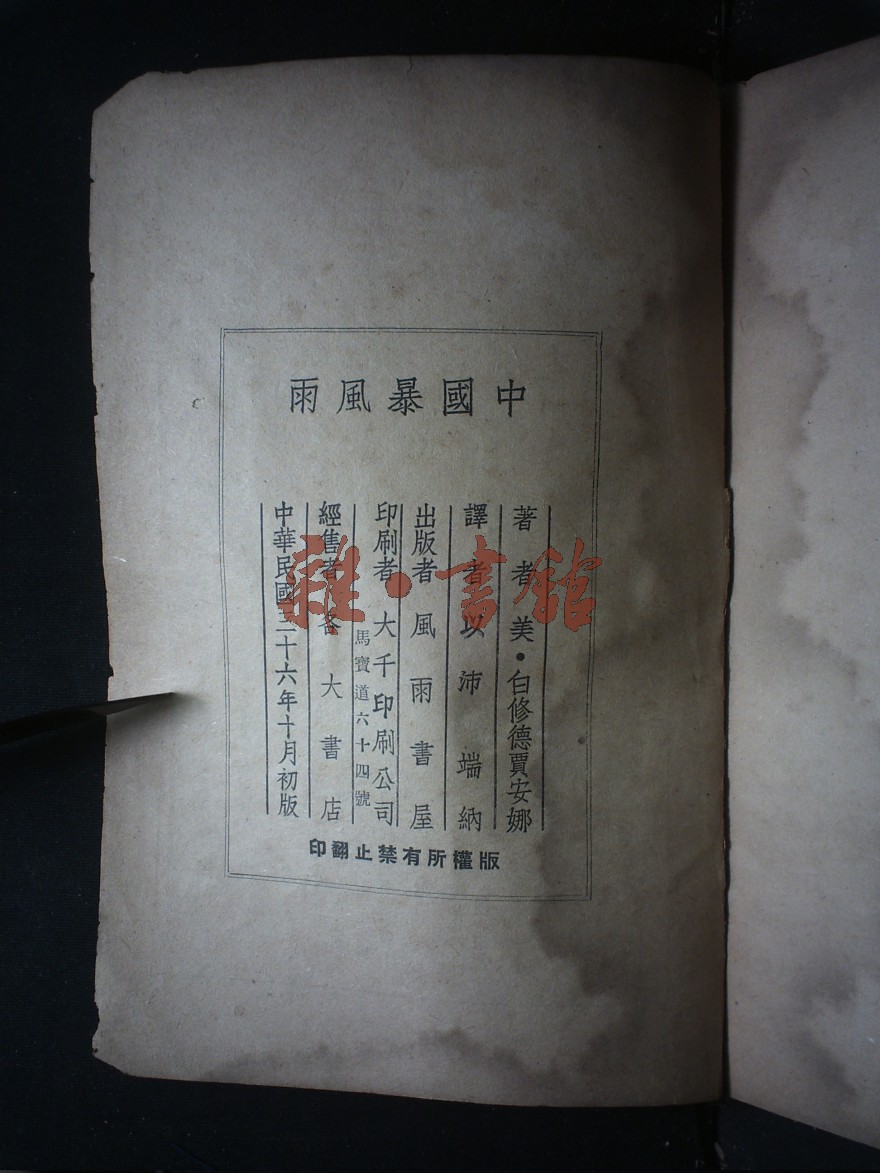 中國暴風雨
著者美•白修德賈安娜
譯者以沛端納
出版者風雨書屋
印刷者大千印刷公司
馬寶道六十四號
經售者各大書店
中華民國三十六年十月初版
版權所有禁止翻印
雜·書館